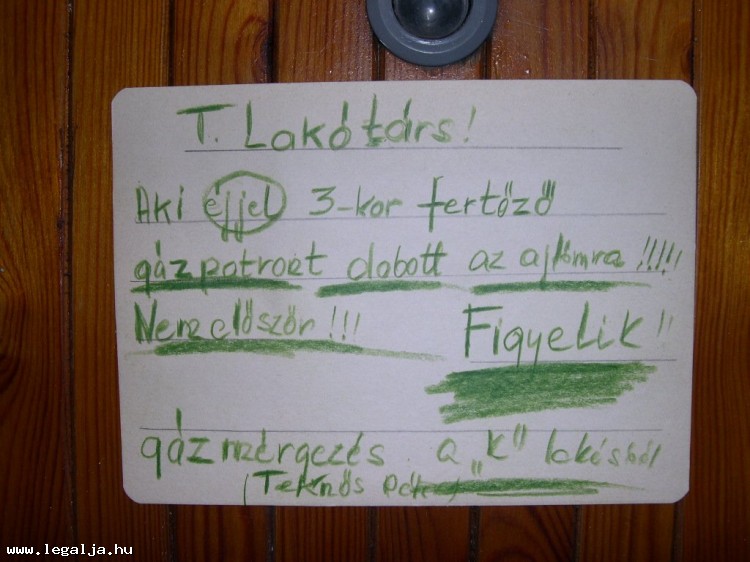 T. Lakótárs!
Aki éjjel 3-kor fertőző
gázpatront dobott az ajtómra !!!!!
Nem először !!! Figyelik !!
gázmérgezés a „K" lakásból
(Teknős
www.legalja.hu